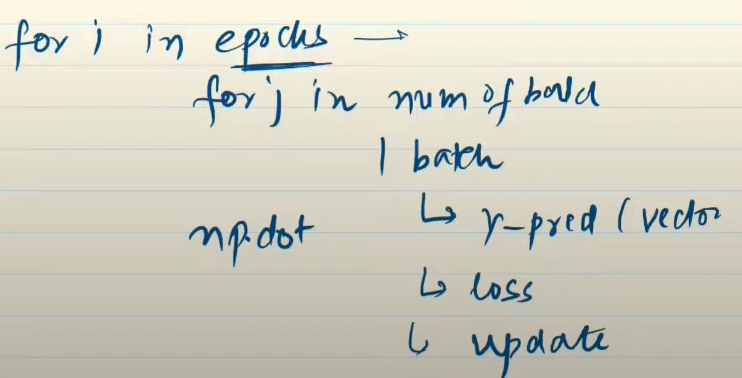 for i in epochs →
for j in num of batch
1 batch
↳ y-pred (vector
np.dot
↳ loss
↳ update